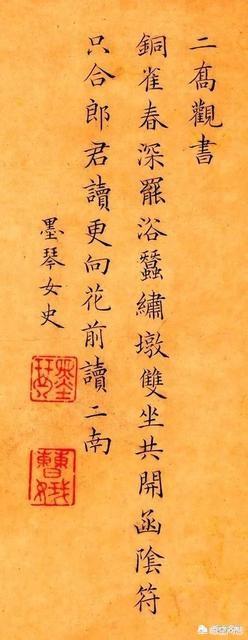 二喬觀書
銅雀春深罷浴蠶繡墩雙坐共開函陰符
只合郎君讀更向花前讀二南
墨琴女史
墨琴
曹